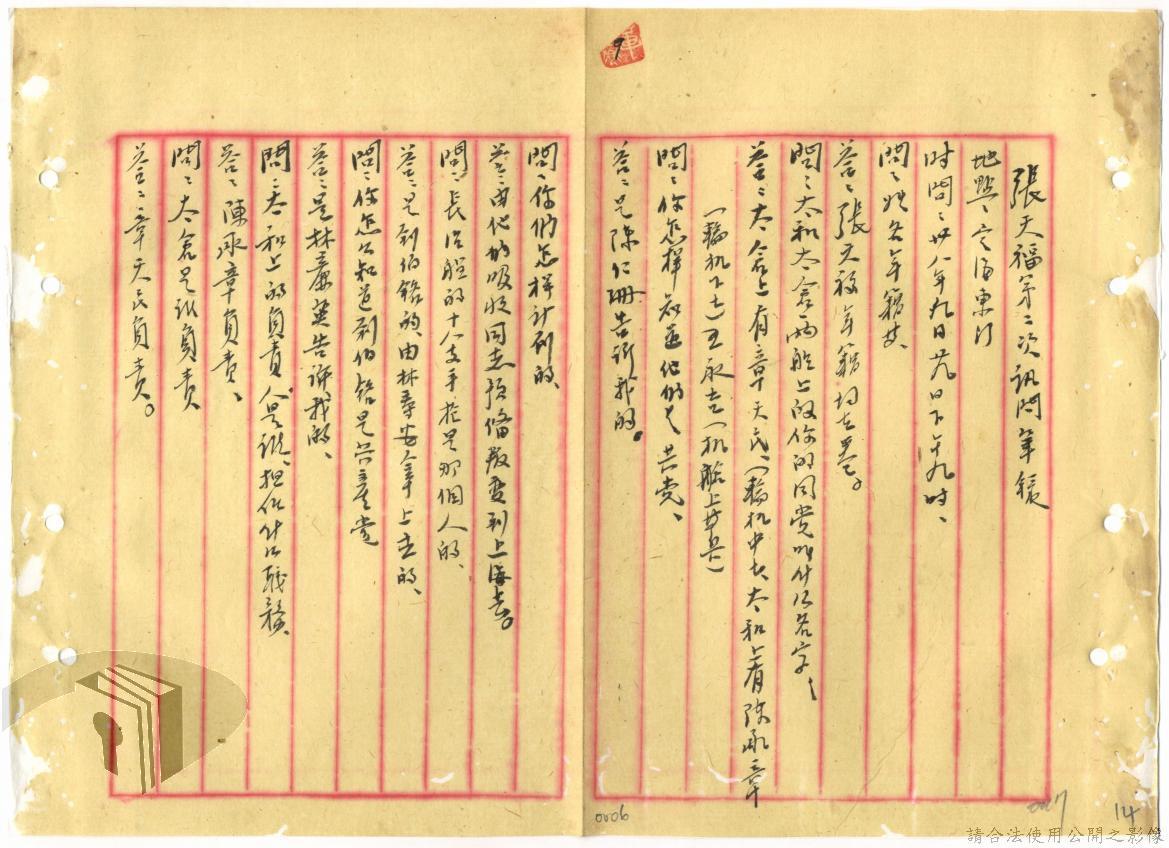 張天福第二次訊問筆錄
地點：定海東門
时間：卅八年九月廿九日下午九时、
問：姓名年籍等
答：張天福年籍均在卷。
問：太和太倉两船上的你的同党叫什么名字？
答：太倉上有章天民、（輪机中士）太和上有陈承章
（輪机下士）王永吉（机艙上等兵）
問：你怎样知道他们是共党、
答：是陈仁珊告訴我的。
問：你们怎样计划的、
答：由他的吸收同志預備叛变到上海去。
問：長治艦的十人支手枪是那個人的、
答：是刘伯銘的、由林寿安拿上去的、
問：你怎么知道刘伯銘是共產党
答：是林廉巽告訴我的、
問：太和上的負責人是誰、担任什么职務、
答：陳承章負責、
問：太倉是誰負責
答：章天民負責。
0006
14
請合法使用公開之影像